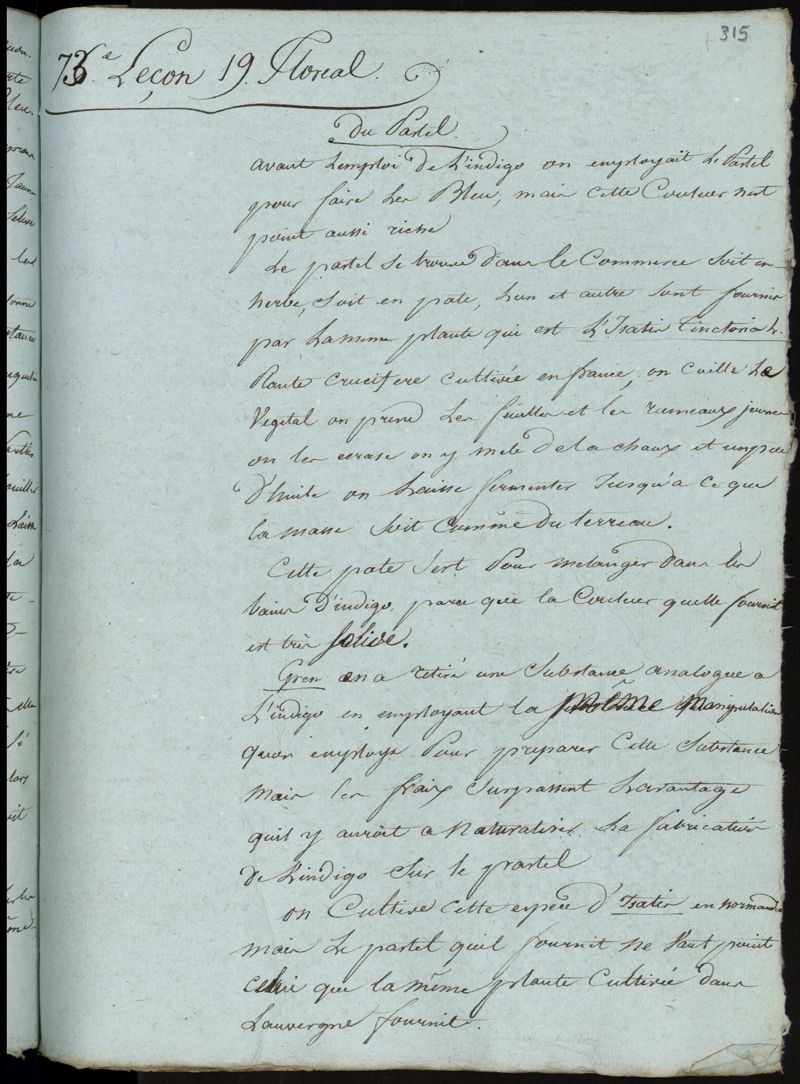 315
73.e Leçon 19. Floreal.
Du Pastel.
avant lemploi de L'indigo on employait Le Pastel
pour faire les Bleu, mais cette Couleur nest
point aussi riche
Le pastel se trouve dans le Commerce soit en
herbe, soit en pate, lun et autre sont fournis
par La meme plante qui est L'Isatis Tinctoria L.
Plante crucifere cultivée en france, on cuille Le
Vegetal on prend Les feuilles et les rameaux jeunes
on les ecrase on y mele de la chaux et un peu
D'huile on Laisse fermenter Jusqu'a ce que
la masse soit comme du terreau.
Cette pate sert Pour melanger dans les
bains D'indigo, parce que la Couleur quelle fournit
est très solide.
Gren en a retiré une Substance analogue a
L'indigo en employant la même manipulation
quon employe Pour preparer Cette Substance
Mais les fraix surpassent Lavantage
quil y auroit a Naturaliser La fabrication
de L'indigo sur le pastel
on Cultive cette espece d'Isatis en normandie
mais Le pastel quil fournit ne Vaut point
celui que la même plante Cultivée dans
Lauvergne fournit.